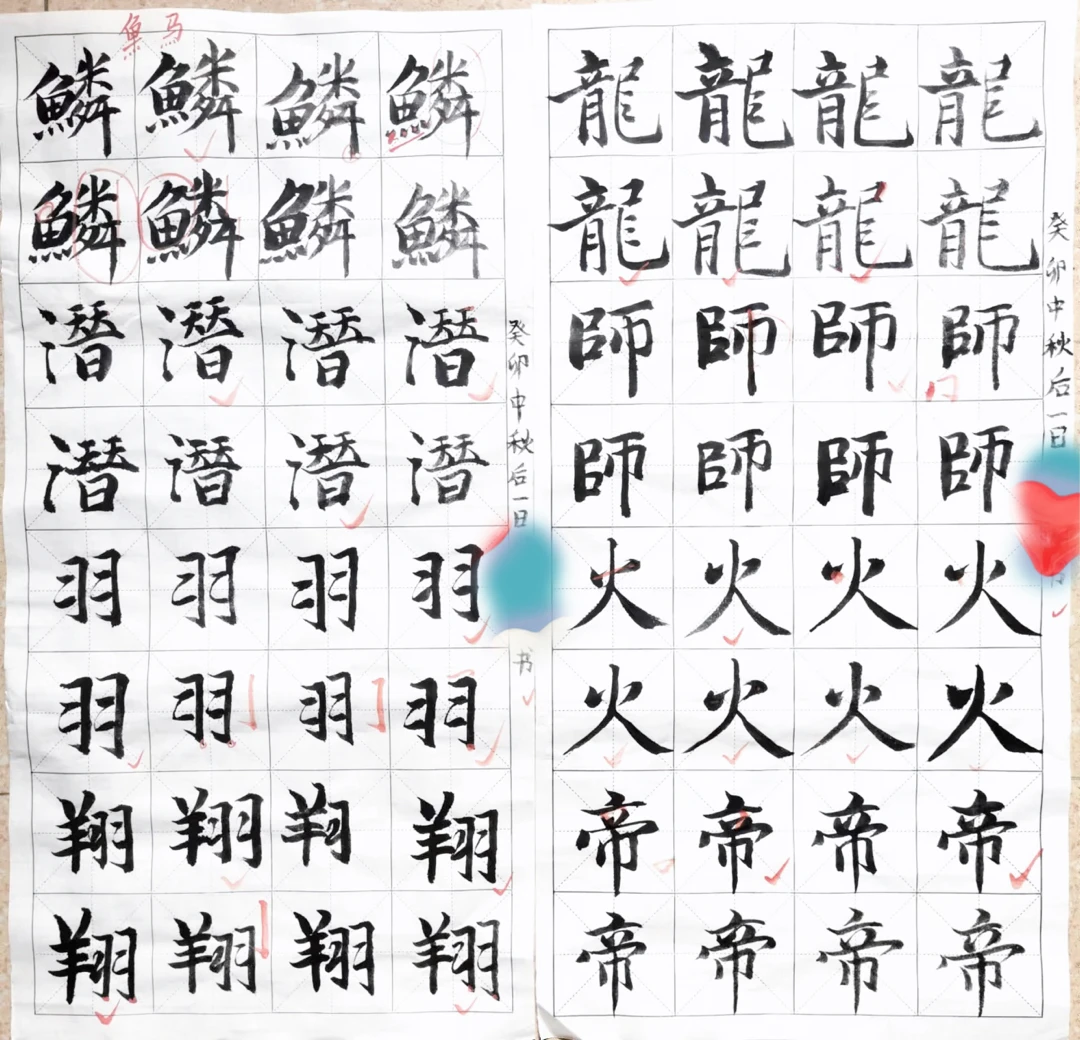 鱼 马
鱗 鱗 鱗 鱗
鱗 鱗 鱗 鱗
潛 潛 潛 潛
潛 潛 潛 潛
羽 羽 羽 羽
羽 羽 羽 羽
翔 翔 羊习 翔
翔 翔 翔 翔
癸卯中秋后一日
书
龍 龍 龍 龍
龍 龍 龍 龍
師 師 師 師
師 師 師 師
火 火 火 火
火 火 火 火
帝 帝 帝 帝
帝 帝 帝 帝
癸卯中秋后一日